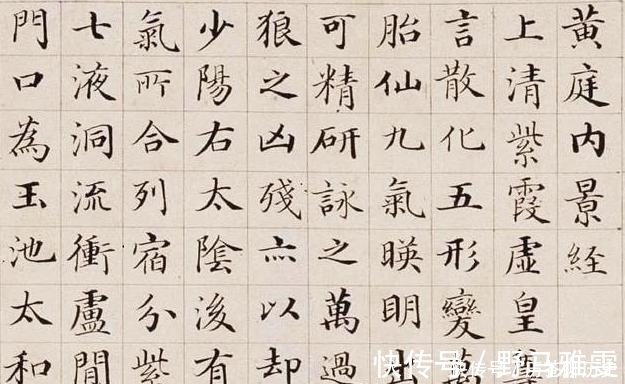 黃庭內景経
上清紫霞虛皇
言散化五形變萬
胎仙九氣暎明出
可精研詠之萬過
狼之凶殘亦以却
少陽右太陰後有
氣所合列宿分紫
七液洞流衝盧閒
門口為玉池太和
快传号/野马雅